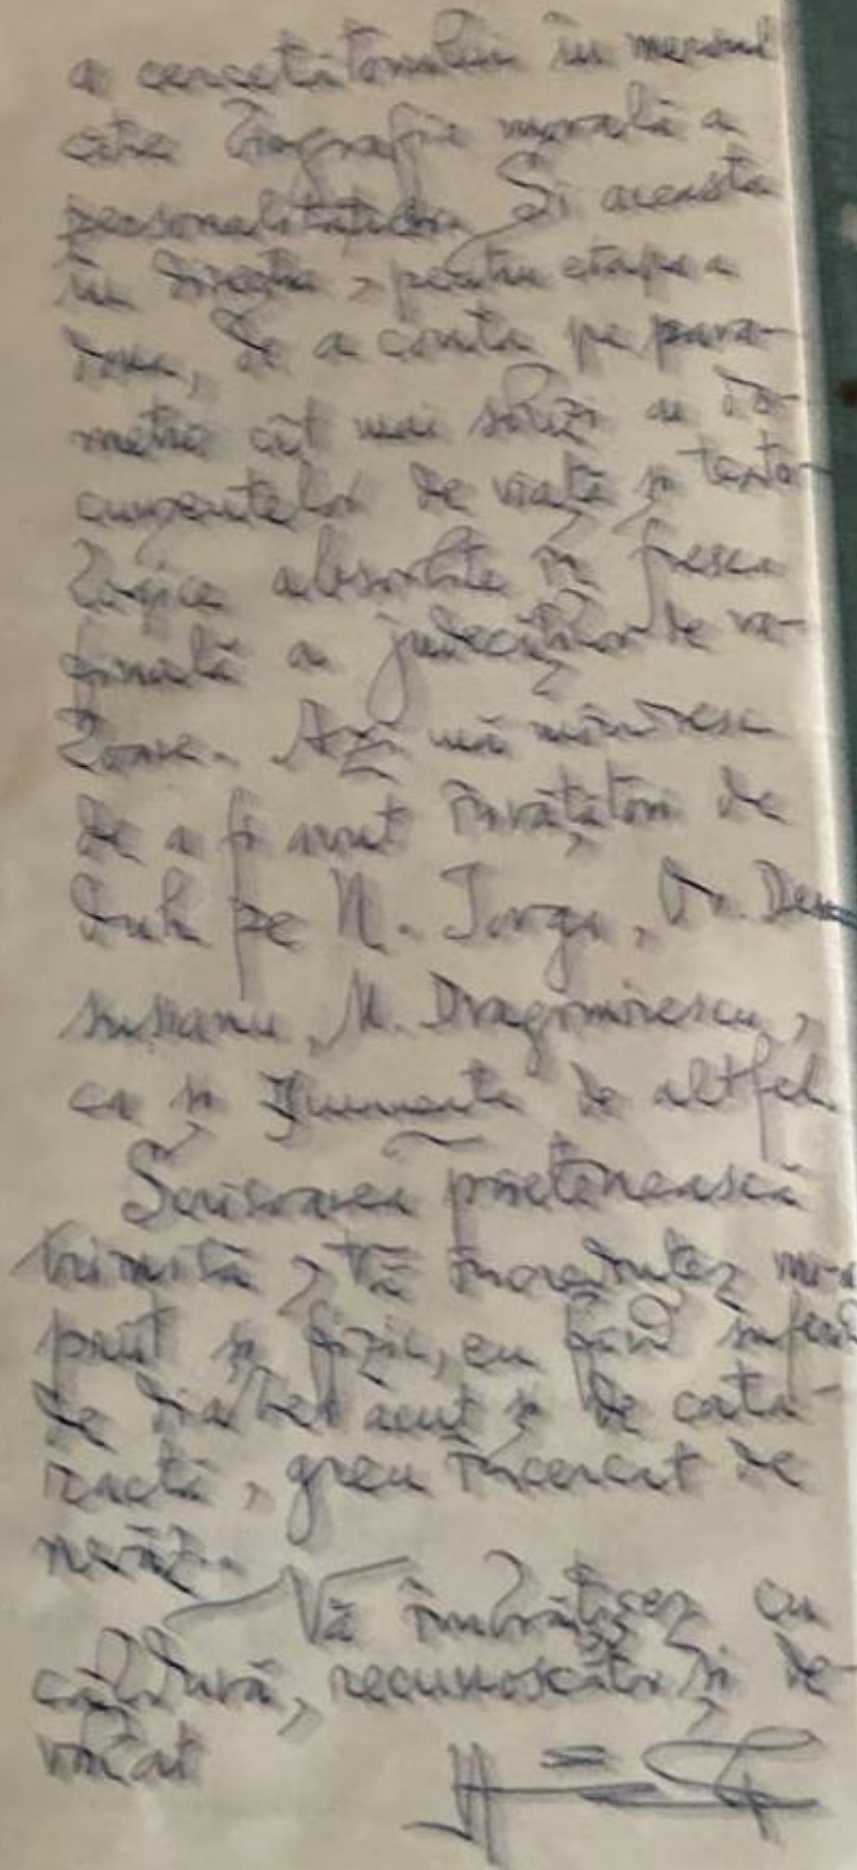 a cercetătorului în mersul
către biografia morală a
personalităților. Și aceasta
în direcția, pentru etapa a
doua, de a conta pe para-
metrii cât mai solizi ai do-
cumentelor de viață și texto-
logice absorbite în fresca
finală a judecăților de va-
loare. Azi mă mândresc
de a fi avut învățători de
duh pe N. Iorga, Ov. Den
susianu, M. Dragomirescu,
ca și de altfel.
Scrisoarea prietenească
trimisă, Vă încredințez, m-a
prins și fizic, eu fiind suferind
de diabet acut și de cata-
ractă, greu încercat de
nevăz.
Vă îmbrățișez cu
căldură, recunoscător și de-
votat